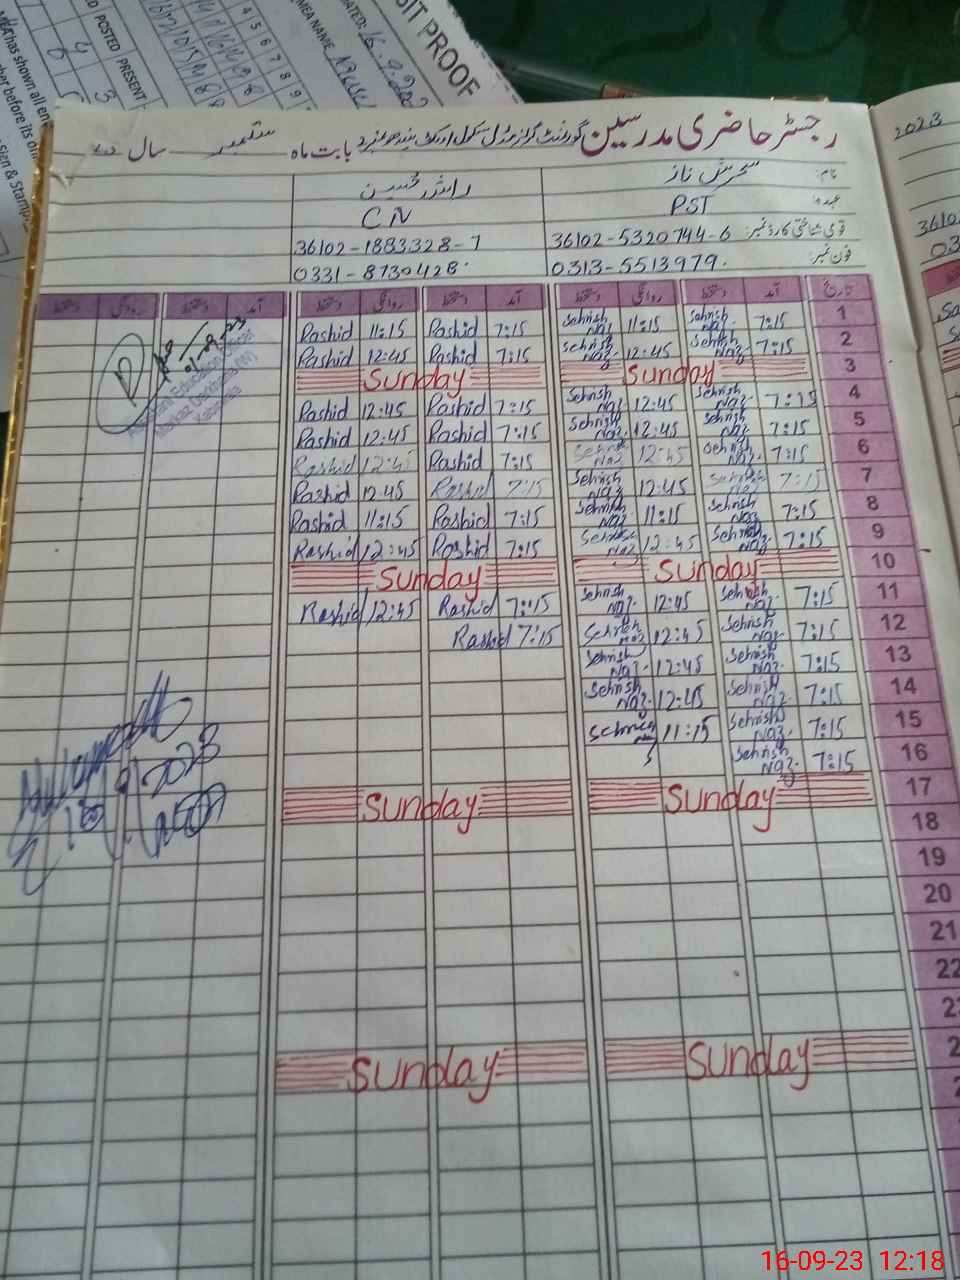 رجسٹر حاضری مدرسین گورنمنٹ گرلز بابت ماہ ستمبر سال
نام: سحرش ناز
عہدہ: PST CIV
قومی شناختی کارڈ نمبر: 36102-5320744-6 36102-1883328-7
فون نمبر: 0313-5513979. 0331-8730428.
تاریخ آمد دستخط روانگی دستخط آمد دستخط روانگی دستخط آمد دستخط روانگی دستخط
1 7:15 Sehrish Naz 11:15 Sehrish Naz 7:15 Rashid 11:15 Rashid
2 7:15 Sehrish Naz 12:45 Sehrish Naz 7:15 Rashid 12:45 Rashid
3 Sunday Sunday
4 7:15 Sehrish Naz 12:45 Sehrish Naz 7:15 Rashid 12:45 Rashid
5 7:15 Sehrish Naz 12:45 Sehrish Naz 7:15 Rashid 12:45 Rashid
6 7:15 Sehrish Naz 12:45 Sehrish Naz 7:15 Rashid 12:45 Rashid
7 7:15 Sehrish Naz 12:45 Sehrish Naz 7:15 Rashid 12:45 Rashid
8 7:15 Sehrish Naz 11:15 Sehrish Naz 7:15 Rashid 11:15 Rashid
9 7:15 Sehrish Naz 12:45 Sehrish Naz 7:15 Rashid 12:45 Rashid
10 Sunday Sunday
11 7:15 Sehrish Naz 12:45 Sehrish Naz 7:15 Rashid 12:45 Rashid
12 7:15 Sehrish Naz 12:45 Sehrish Naz 7:15 Rashid
13 7:15 Sehrish Naz 12:45 Sehrish Naz
14 7:15 Sehrish Naz 12:45 Sehrish Naz
15 7:15 Sehrish Naz 11:15 Sehrish Naz
16 7:15 Sehrish Naz
17 Sunday Sunday
18
19
20
21
22
Sunday Sunday
Assistant Education Officer
Markaz
2023
BIT PROOF
MEA NAME
POSTED PRESENT
has shown all
before its
Sign & Stamp
2023
16-09-23 12:18